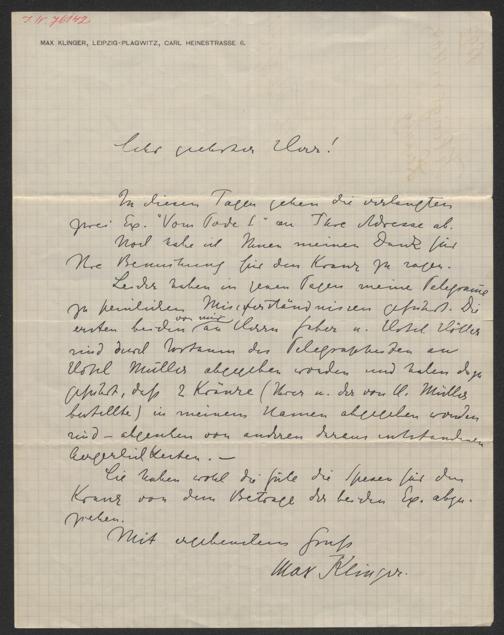 I. N. 76142
MAX KLINGER, LEIPZIG-PLAGWITZ, CARL HEINESTRASSE 6.
Sehr geehrter Herr!
In diesen Tagen gehen die verlangten
zwei Ex. "Vom Tode I" an Ihre Adresse ab.
Noch habe ich Ihnen meinen Dank für
Ihre Bemühung für den Kranz zu sagen.
Leider haben in jenen Tagen meine Telegramme
zu peinlichen Missverständnissen geführt. Die
ersten beiden von mir an Herrn Faber u. Hotel Müller
sind durch Vertaum des Telegraphisten an
Hotel Müller abgegeben worden und haben dazu
geführt, daß 2 Kränze (Ihrer u. der von H. Müller
bestellte) in meinem Namen abgegeben worden
sind – abgesehen von anderen daraus entstandenen
Aergerlichkeiten. –
Sie haben wohl die Güte die Spesen für den
Kranz von dem Betrage der beiden Ex. abzu-
ziehen.
Mit ergebenstem Gruß
Max Klinger.